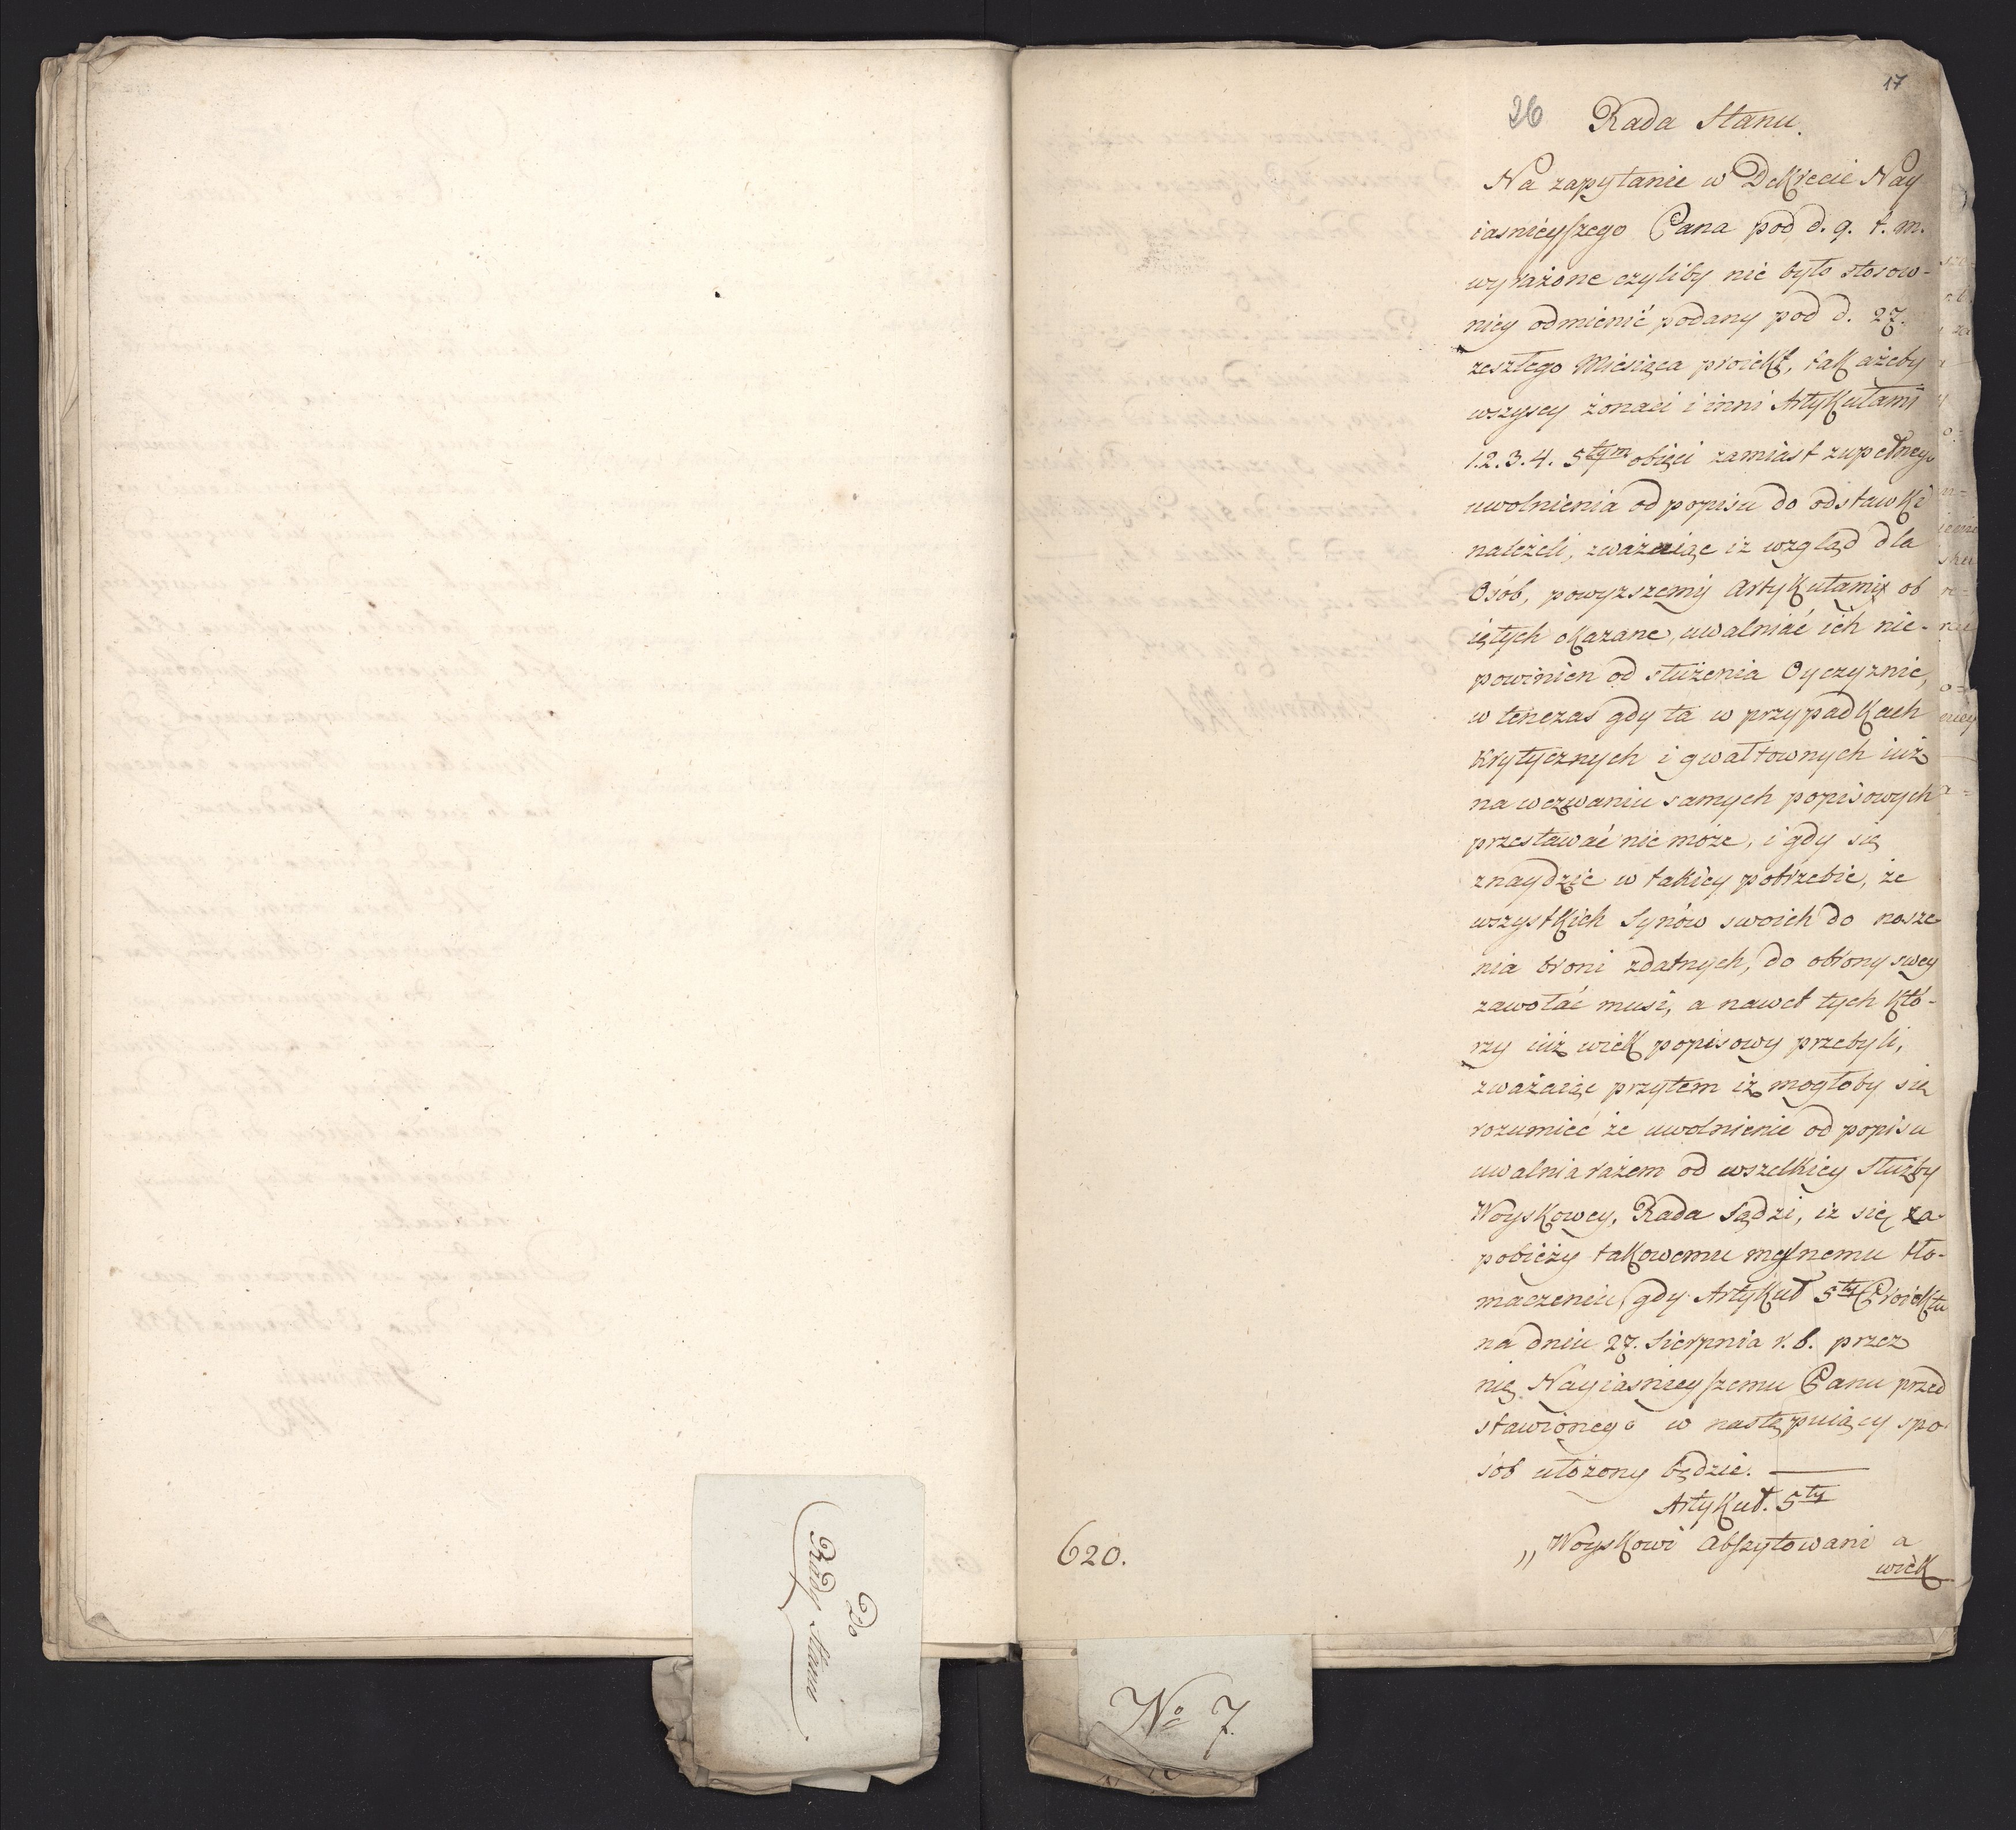 17
26 Rada Stanu.
Na zapytanie w Dekrecie Nay
iasnieyszego Pana pod d. 9. t. m.
wyrażone czyliby nie było stosow-
niey odmienić podany pod d. 27.
zeszłego Miesiąca proiekt, tak ażeby
wszyscy żonaci i inni Artykułami
1. 2. 3. 4. 5tym obięci zamiast zupełnego
uwolnienia od popisu do odstawki
należeli, zważaiąc iż wzgląd dla
Osób, powyższemi Artykułami ob
iętych okazane, uwalniać ich nie-
powinien od służenia Oyczyznie,
w tenczas gdy ta w przypadkach
krytycznych i gwałtownych iuż
na wezwaniu samych popisowych
przestawać nie może, i gdy się
znaydzie w takiey potrzebie, że
wszystkich Synów swoich do nosze-
nia broni zdatnych, do obrony swey
zawołać musi, a nawet tych któ-
rzy iuż wiek popisowy przebyli,
zważaiąc przytem iż mogłoby się
rozumieć że uwolnienie od popisu
uwalnia razem od wszelkiey Służby
Woyskowey, Rada sądzi, iż się za-
pobieży takowemu mylnemu tło-
maczeniu, gdy Artykuł 5ty Proiektu
na dniu 27. Sierpnia r. b. przez
nię Nayiasnieyszemu Panu przed
stawionego w następuiący spo-
sób ułożony będzie.
Artykuł. 5ty
„Woyskowi Abszytowani a
wiek
620.
Do
Rady Stanu
No 7.